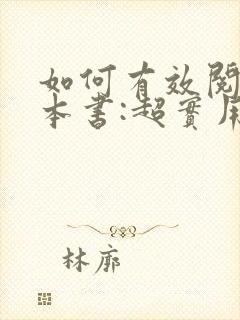 如何有效閱
本書:超實用
林廓